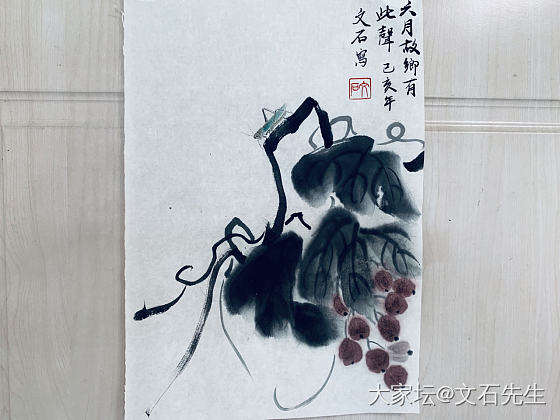 六月故鄉有
此聲 己亥年
文石寫
文石
大家坛@文石先生